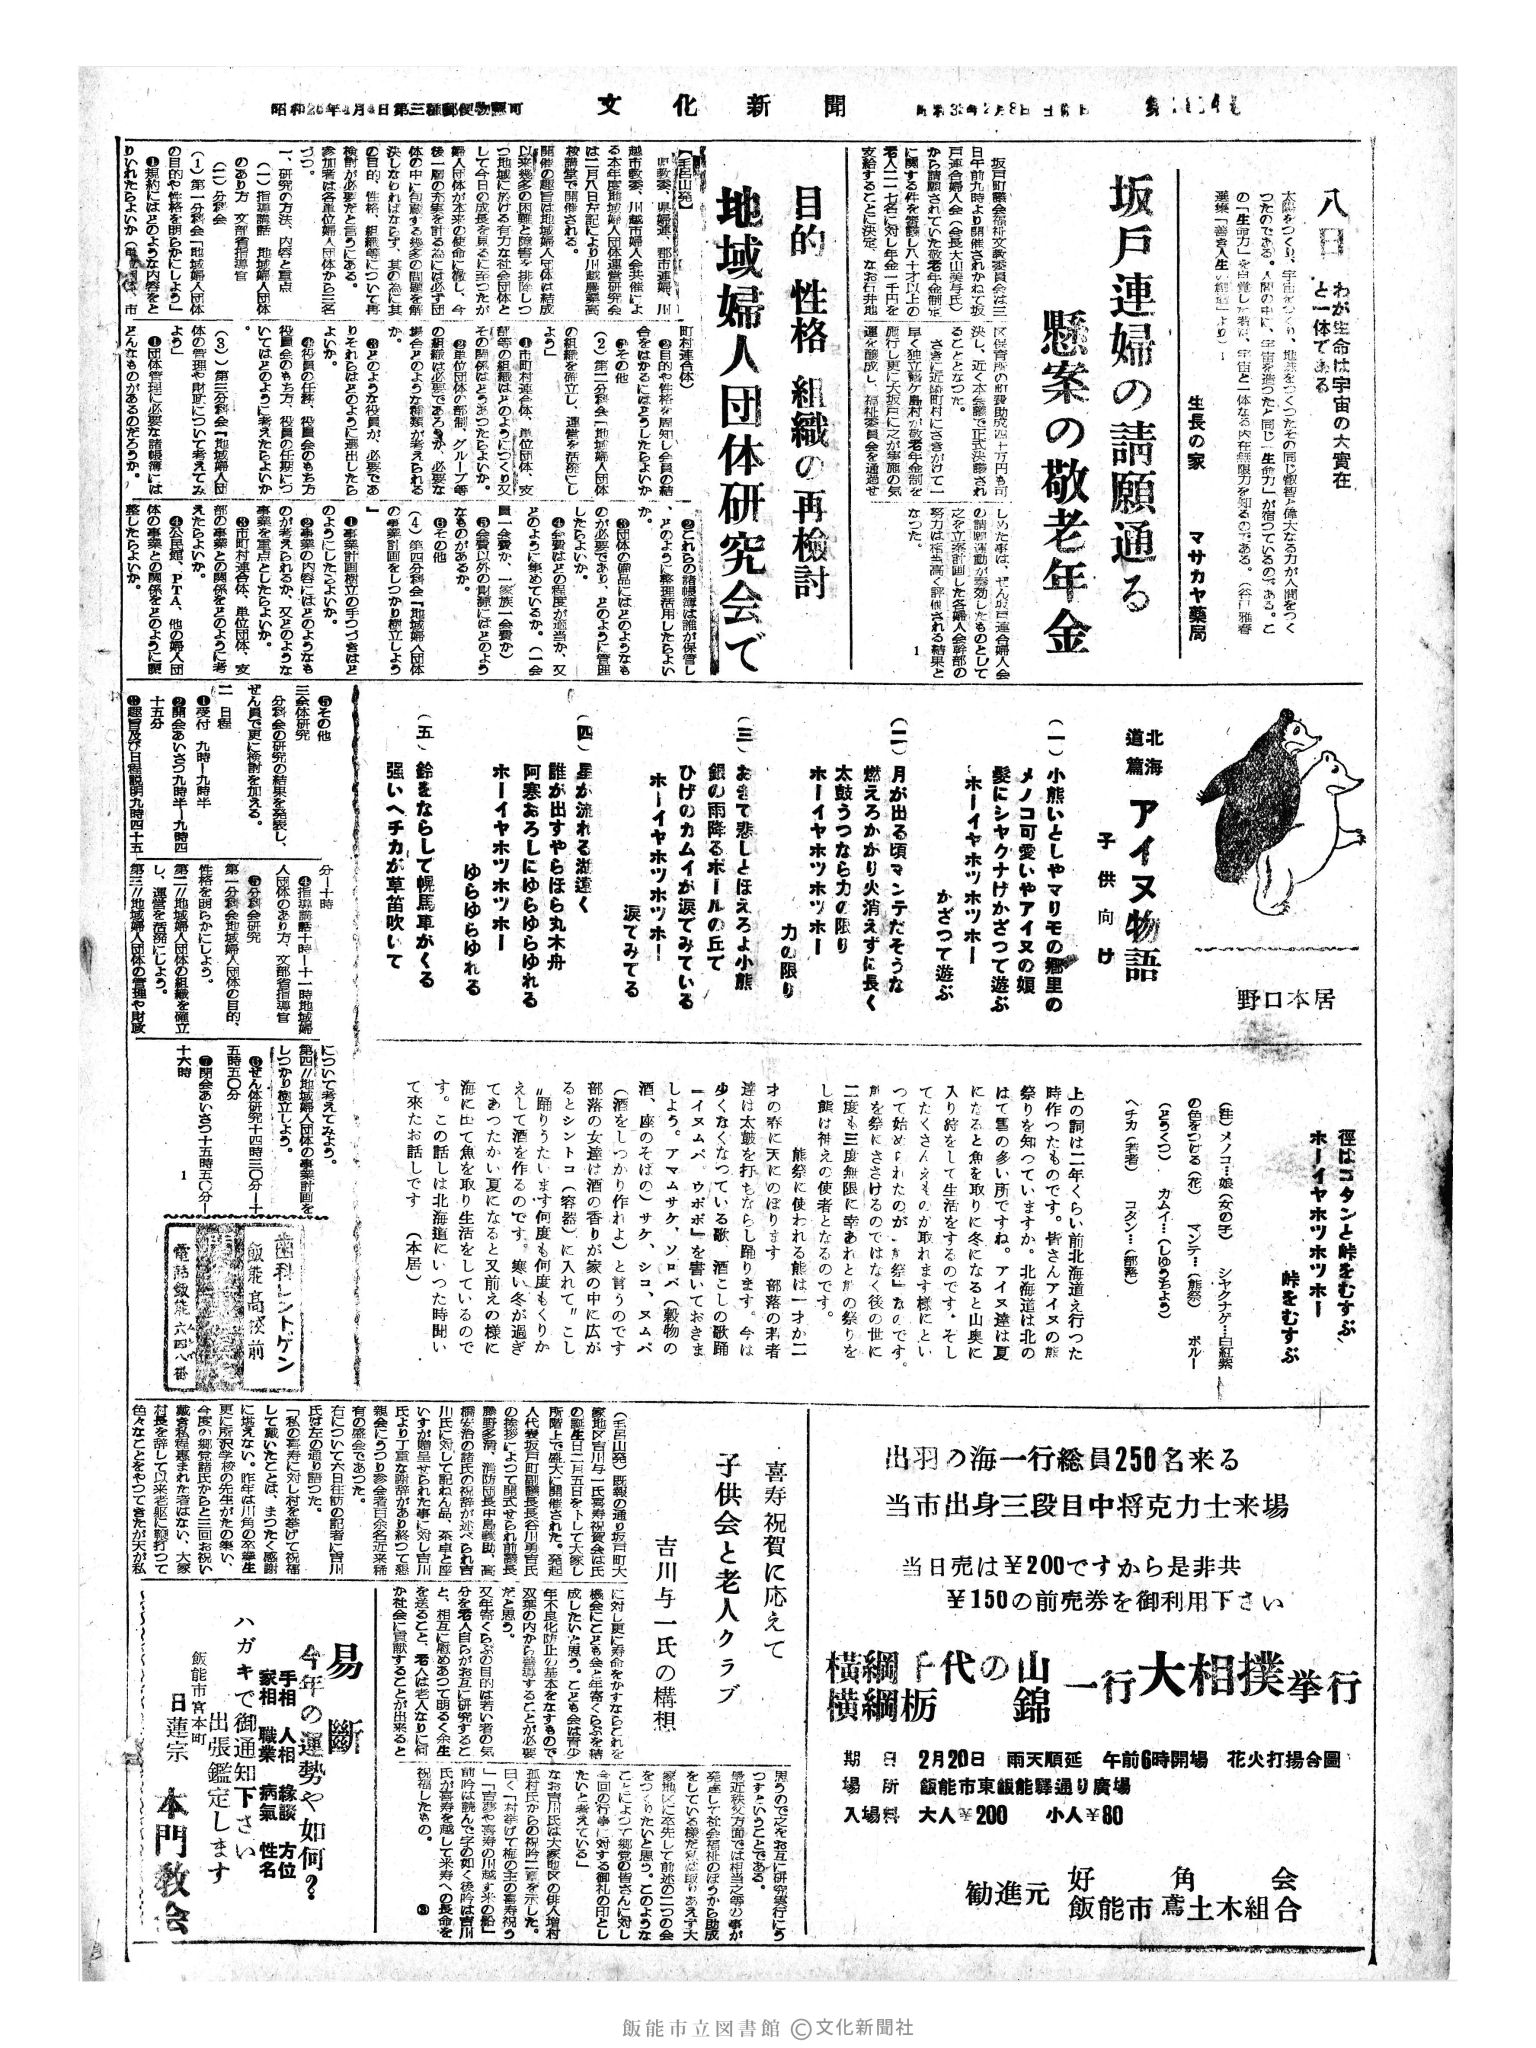 文化新聞
八日
わが生命は宇宙の大實在
と一体である
生長の家
マサカヤ薬局
坂戸連婦の請願通る
懸案の敬老年金
坂戸町議会福祉文教委員会は三
日午前九時より開催されかねて坂
戸連合婦人会(会長大山美与氏)
から請願されていた敬老年金制定
に関する件を審議し八十才以上の
老人二二七名に対し年金一千円を
支給することに決定、なお石井地
区保育所の町費助成四十万円も可
決し、近く本会議で正式決議され
ることとなつた。
さきに近隣町村にさきがけて一
早く独立鶴ケ島村が敬老年金制を
施行し更に大坂戸に之が実施の気
運を醸成し、福祉委員会を通過せ
しめた事は、ぜん坂戸連合婦人会
の請願運動が奏効したものとして
之を立案計画した各婦人会幹部の
努力は相当高く評価される結果と
なつた。
目的 性格 組織の再検討
地域婦人団体研究会で
【毛呂山発】
県教委、川
越市教委、県婦連、郡市連婦、川
越市婦人会共催によ
る本年度地域婦人団体運営研究会
は二月八日左記により川越農業高
校講堂で開催される。
開催の趣旨は地域婦人団体は結成
以来幾多の困難と障害を排除しつ
つ地域に於ける有力な社会団体と
して今日の成長を見るに至つたが
婦人団体が本来の使命に徹し、今
後一層の充実を計る為には必ず団
体の中に包蔵する幾多の問題を解
決しなければならず、其の為に其
の目的、性格、組織等について再
検討が必要だと言うにある。
参加者は各単位婦人団体から三名
づつ。
一、研究の方法、内容と重点
(一)指導講話 地域婦人団体
のあり方 文部省指導官
(二)分科会
(1)第一分科会「地域婦人団体
の目的や性格を明らかにしよう」
❶規約にはどのような内容をと
りいれたらよいか(単位団体、市
町村連合体)
❷目的や性格を周知し会員の結
合をはかるにはどうしたらよいか
❸その他
(2)第二分科会「地域婦人団体
の組織を確立し、運営を活溌にし
よう」
❶市町村連合体、単位団体、支
部等の組織はどのようにつくり又
その関係はどうあつたらよいか。
❷単位団体の部制、グループ等
の組織は必要であろうか、必要な
場合どのような種類が考えられる
か。
❸どのような役員が、必要であ
りそれらはどのように選出したら
よいか。
❹役員の任務、役員会のもち方
役員会のもち方、役員の任期につ
いてはどのように考えたらよいか
(3)第三分科会「地域婦人団
体の管理や財政について考えてみ
よう」
❶団体管理に必要な諸帳簿には
どんなものがあるのだろうか。
❷これらの諸帳簿は誰が保管し
、どのように整理活用したらよい
か。
❸団体の備品にはどのようなも
のが必要であり、どのように管理
したらよいか。
❹会費はどの程度が適当か、又
どのように集めているか。(一会
員一会費か、一家族一会費か)
❺会費以外の財源にはどのよう
なものがあるか。
❻その他
(4)第四分科会「地域婦人団体
の事業計画をしつかり樹立しよう
」
❶事業計画樹立の手つづきはど
のようにしたらよいか。
❷事業の内容にはどのようなも
のが考えられるか、又どのような
事業を重点としたらよいか。
❸市町村連合体、単位団体、支
部の事業との関係をどのように考
えたらよいか。
❹公民館、PTA、他の婦人団
体の事業との関係をどのように調
整したらよいか。
❺その他
三全体研究
分科会の研究の結果を発表し、
ぜん員で更に検討を加える。
二 日程
❶受付 九時―九時半
❷開会あいさつ九時半―九時四
十五分
❸趣旨及び日程説明九時四十五
分―十時
❹指導講話十時―十一時地域婦
人団体のあり方、文部省指導官
❺分科会研究
第一分科会地域婦人団体の目的、
性格を明らかにしよう。
第二〃地域婦人団体の組織を確立
し、運営を活溌にしよう。
第三〃地域婦人団体の管理や財政
について考えてみよう。
第四〃地域婦人団体の事業計画を
しつかり樹立しよう。
❻ぜん体研究十四時三〇分―十
五時五〇分
❼閉会あいさつ十五時五〇分―
十六時
北海道篇 アイヌ物語
子供向け
野口本居
(一)小熊いとしやマリモの郷里の
メノコ可愛いやアイヌの娘
髪にシヤクナげかざつて遊ぶ
ホーイヤホツホツホー
かざつて遊ぶ
(二)月が出る頃マンテだそうな
燃えろかかり火消えずに長く
太鼓うつなら力の限り
ホーイヤホツホツホー
力の限り
(三)おきて悲しとほえろよ小熊
銀の雨降るボールの丘で
ひげのカムイが涙てみている
ホーイヤホツホツホー
涙てみてる
(四)星が流れる湖遠く
誰が出すやらほら丸木舟
阿寒おろしにゆらゆらゆれる
ホーイヤホツホツホー
ゆらゆらゆれる
(五)鈴をならして幌馬車がくる
強いヘチカが草笛吹いて
徑はコタンと峠をむすぶ
ホーイヤホツホツホー
峠をむすぶ
(註)メノコ…娘(女の子) シヤクナゲ…白紅紫
の色をつける(花) マンテ…(熊祭) ボルー
(どうくつ) カムイ…(しゆうちよう)
ヘチカ(若者) コタン…(部落)
上の詞は二年くらい前北海道え行つた
時作つたものです。皆さんアイヌの熊
祭りを知つていますか。北海道は北の
はて雪の多い所ですね。アイヌ達は夏
になると魚を取りに冬になると山奥に
入り狩をして生活をするのです。そし
てたくさんえものが取れます様にとい
つて始められたのが〝熊祭〟なのです。
熊を祭にささげるのではなく後の世に
二度も三度無限に幸あれと熊の祭りを
し熊は神えの使者となるのです。
熊祭に使われる熊は一才か二
才の春に天にのぼります 部落の若者
達は太鼓を打ちならし踊ります。今は
少くなくなつている歌、酒こしの歌踊
〝イヌムバ、ウポポ〟を書いておきま
しよう。アマムサケ、ソロバ(穀物の
酒、座のそばの)サケ、シコ、ヌムバ
(酒をしつかり作れよ)と言うのです
部落の女達は酒の香りが家の中に広が
るとシントコ(容器)に入れて〃こし
〃踊りうたいます何度も何度もくりか
えして酒を作るのです。寒い冬が過ぎ
てあつたかい夏になると又前えの様に
海に出て魚を取り生活をしているので
す。この話しは北海道にいつた時聞い
て来たお話しです (本居)
歯科レントゲン
飯能高校前
電話飯能六四八番
喜寿祝賀に応えて
子供会と老人クラブ
吉川与一氏の構想
(毛呂山発)既報の通り坂戸町大
家地区吉川与一氏喜寿祝賀会は氏
の誕生日二月五日を卜して大家し
所階上で盛大に開催された。発起
人代表坂戸町副議長長谷川勇吉氏
の挨拶によつて開式せられ前議長
藤野多満、消防団長中島義助、高
橋安治の諸氏の祝辞が述べられ吉
川氏に対して記ねん品、茶卓と座
いすが贈呈せられた事に対し吉川
氏より丁重な謝辞があり終つて懇
親会にうつり参会者百余名近来稀
有の盛会であつた。
右について六日往訪の記者に吉川
氏は左の通り語つた。
「私の喜寿に対し村を挙げて祝福
して戴いたことは、まつたく感謝
に堪えない。昨年は川角の卒業生
更に所沢学校の先生がたの集い、
今度の郷党諸氏からと三回お祝い
戴き私程恵まれた者はない、大家
村長を辞して以来老躯に鞭打つて
色々なことをやつてきたが天が私
に対し更に寿命をかすならこれを
機会にこども会と年寄くらぶを結
成したいと思う。こども会は青少
年不良化防止の基本をなすもので
双葉の内から善導することが必要
だと思う。
又年寄くらぶの目的は若い者の気
分を老人自らがお互に研究すると
と、相互に慰めあつて明るく余生
を送ること、老人は老人なりに何
か社会に貢献することが出来ると
思うので之をお互に研究実行にう
つすということである。
最近秩父方面では相当之等の事が
発達して社会福祉のほうから助成
をしている様だ私は取りあえず大
家地区に卒先して前述の二つの会
をつくりたいと思う。このような
ことによつて郷党の皆さんに対し
今回の行事に対する御礼の印とし
たいと考えている」
なお吉川氏は大家地区の俳人増村
孤村氏からの祝吟二章を示した。
曰く「村挙げて梅の主の喜寿祝う
」「吉夢や喜寿の川越す米の船」
前吟は読んで字の如く後吟は吉川
氏が喜寿を越して米寿への長命を
祝福したもの。
易斷
今年の運勢や如何?
手相 人相 緣談 方位
家相 職業 病氣 姓名
ハガキで御通知下さい
出張鑑定します
飯能市宮本町
日蓮宗 本門教会
出羽の海一行総員250名来る
当市出身三段目中将克力士来場
当日売は¥200ですから是非共
¥150の前売券を御利用下さい
横綱千代の山
横綱栃錦
一行大相撲挙行
期日 2月20日 雨天順延 午前6時開場 花火打揚合圖
場所 飯能市東飯能驛通り廣場
入場料 大人¥200 小人¥80
勧進元 好角会
飯能市鳶土木組合
飯能市立図書館 ©文化新聞社